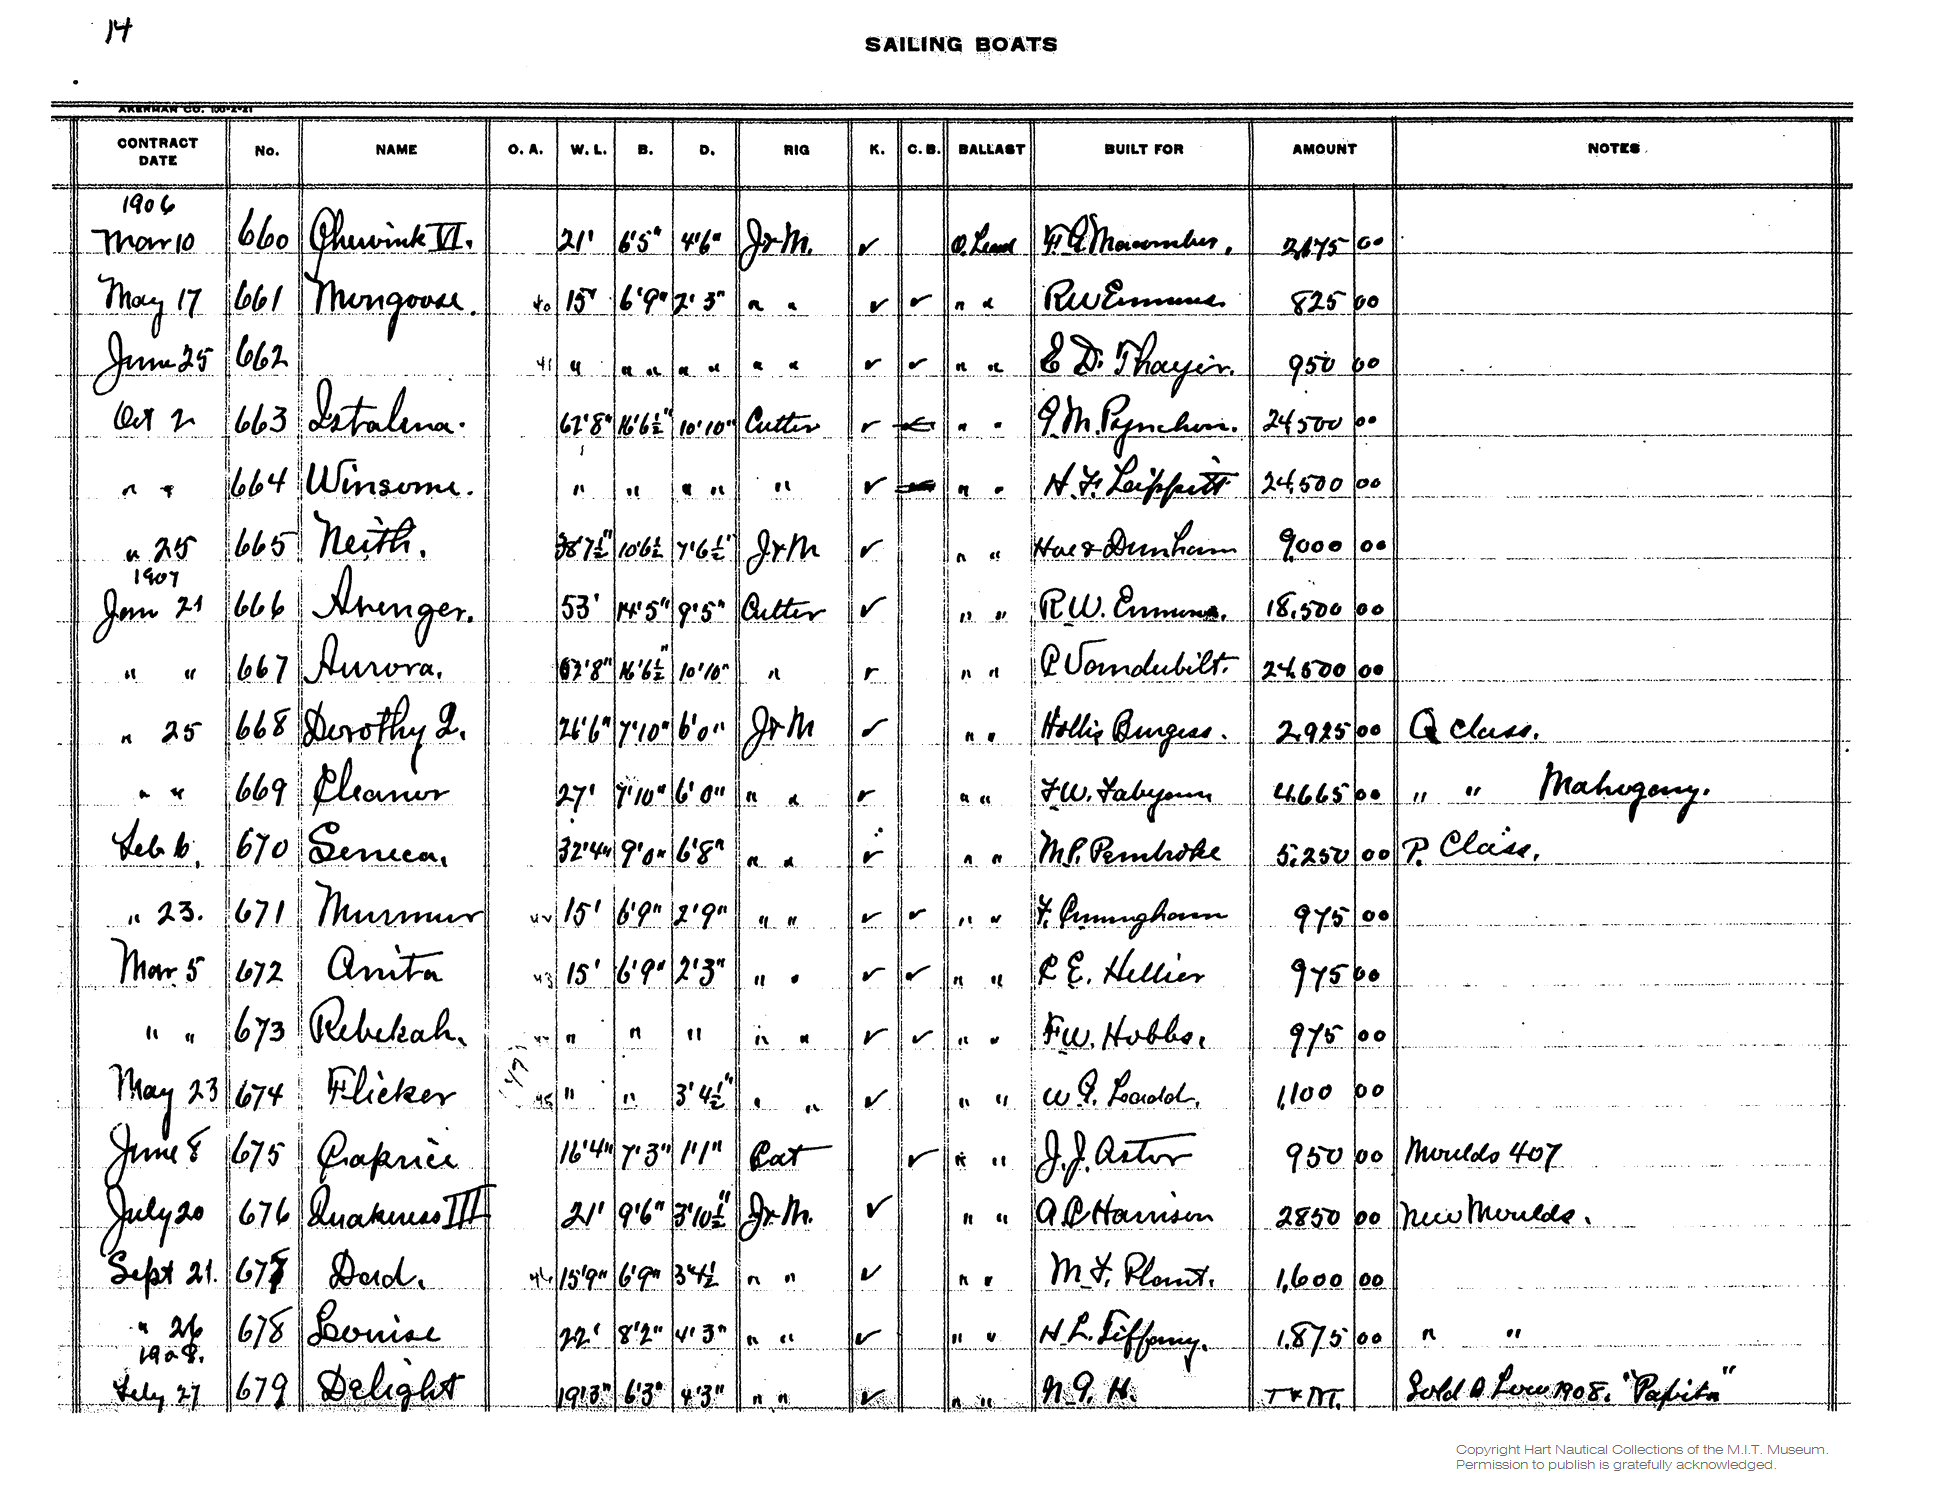 14
SAILING BOATS
AKERMAN CO. 100-2-21
CONTRACT DATE No. NAME O. A. W. L. B. D. RIG K. C. B. BALLAST BUILT FOR AMOUNT NOTES
1906
Mar 10 660 Chewink VI. 21' 6'5" 4'6" J & M. ✓ O. Lead F. G. Macomber. 2,175 00
May 17 661 Mongoose. 40 15' 6'9" 2'3" " " ✓ ✓ " " R W Emmons. 825 00
June 25 662 41 " " " " " " " ✓ ✓ " " E. D. Thayer. 950 00
Oct 2 663 Istalena. 62'8" 16'6½" 10'10" Cutter ✓ " " G. M. Pynchon. 24,500 00
" " 664 Winsome. " " " " " ✓ " " H. F. Lippitt 24,500 00
" 25 665 Neith. 38'7½" 10'6½ 7'6½" J & M ✓ " " Hoe & Dunham 9,000 00
1907
Jan 21 666 Avenger. 53' 14'5" 9'5" Cutter ✓ " " R. W. Emmons. 18,500 00
" " 667 Aurora. 62'8" 16'6½" 10'10" " ✓ " " C Vanderbilt. 24,500 00
" 25 668 Dorothy Q. 26'6" 7'10" 6'0" J & M ✓ " " Hollis Burgess. 2,925 00 Q class.
" " 669 Eleanor 27' 7'10" 6'0" " " ✓ " " F. W. Fabyan 4,665 00 " " Mahogany.
Feb 6. 670 Seneca. 32'4" 9'0" 6'8" " " ✓ " " M. P. Pembroke 5,250 00 P. Class.
" 23. 671 Murmur 42 15' 6'9" 2'9" " " ✓ ✓ " " F. Cunningham 975 00
Mar. 5 672 Anita 43 15' 6'9" 2'3" " " ✓ ✓ " " C E. Hellier 975 00
" " 673 Rebekah. " " " " " ✓ ✓ " " F. W. Hobbs. 975 00
May 23 674 Flicker 45 " " 3'4½" " " ✓ " " W. G. Ladd. 1,100 00
June 8 675 Caprice 16'4" 7'3" 1'1" Cat ✓ " " J. J. Astor 950 00 Moulds 407
July 20 676 Quakeress III 21' 9'6" 3'10½" J & M. ✓ " " A C Harrison 2850 00 New Moulds.
Sept 21. 677 Dad. 46 15'9" 6'9" 3'4½ " " ✓ " " M. F. Plant. 1,600 00
" 26 678 Louise 22' 8'2" 4'3" " " ✓ " " H. L. Tiffany. 1,875 00 " "
1908.
Feby 27 679 Delight 19'3" 6'3" 4'3" " " ✓ " " N. G. H. T & M. Sold A Low 1908. "Papita"
Copyright Hart Nautical Collections of the M.I.T. Museum.
Permission to publish is gratefully acknowledged.